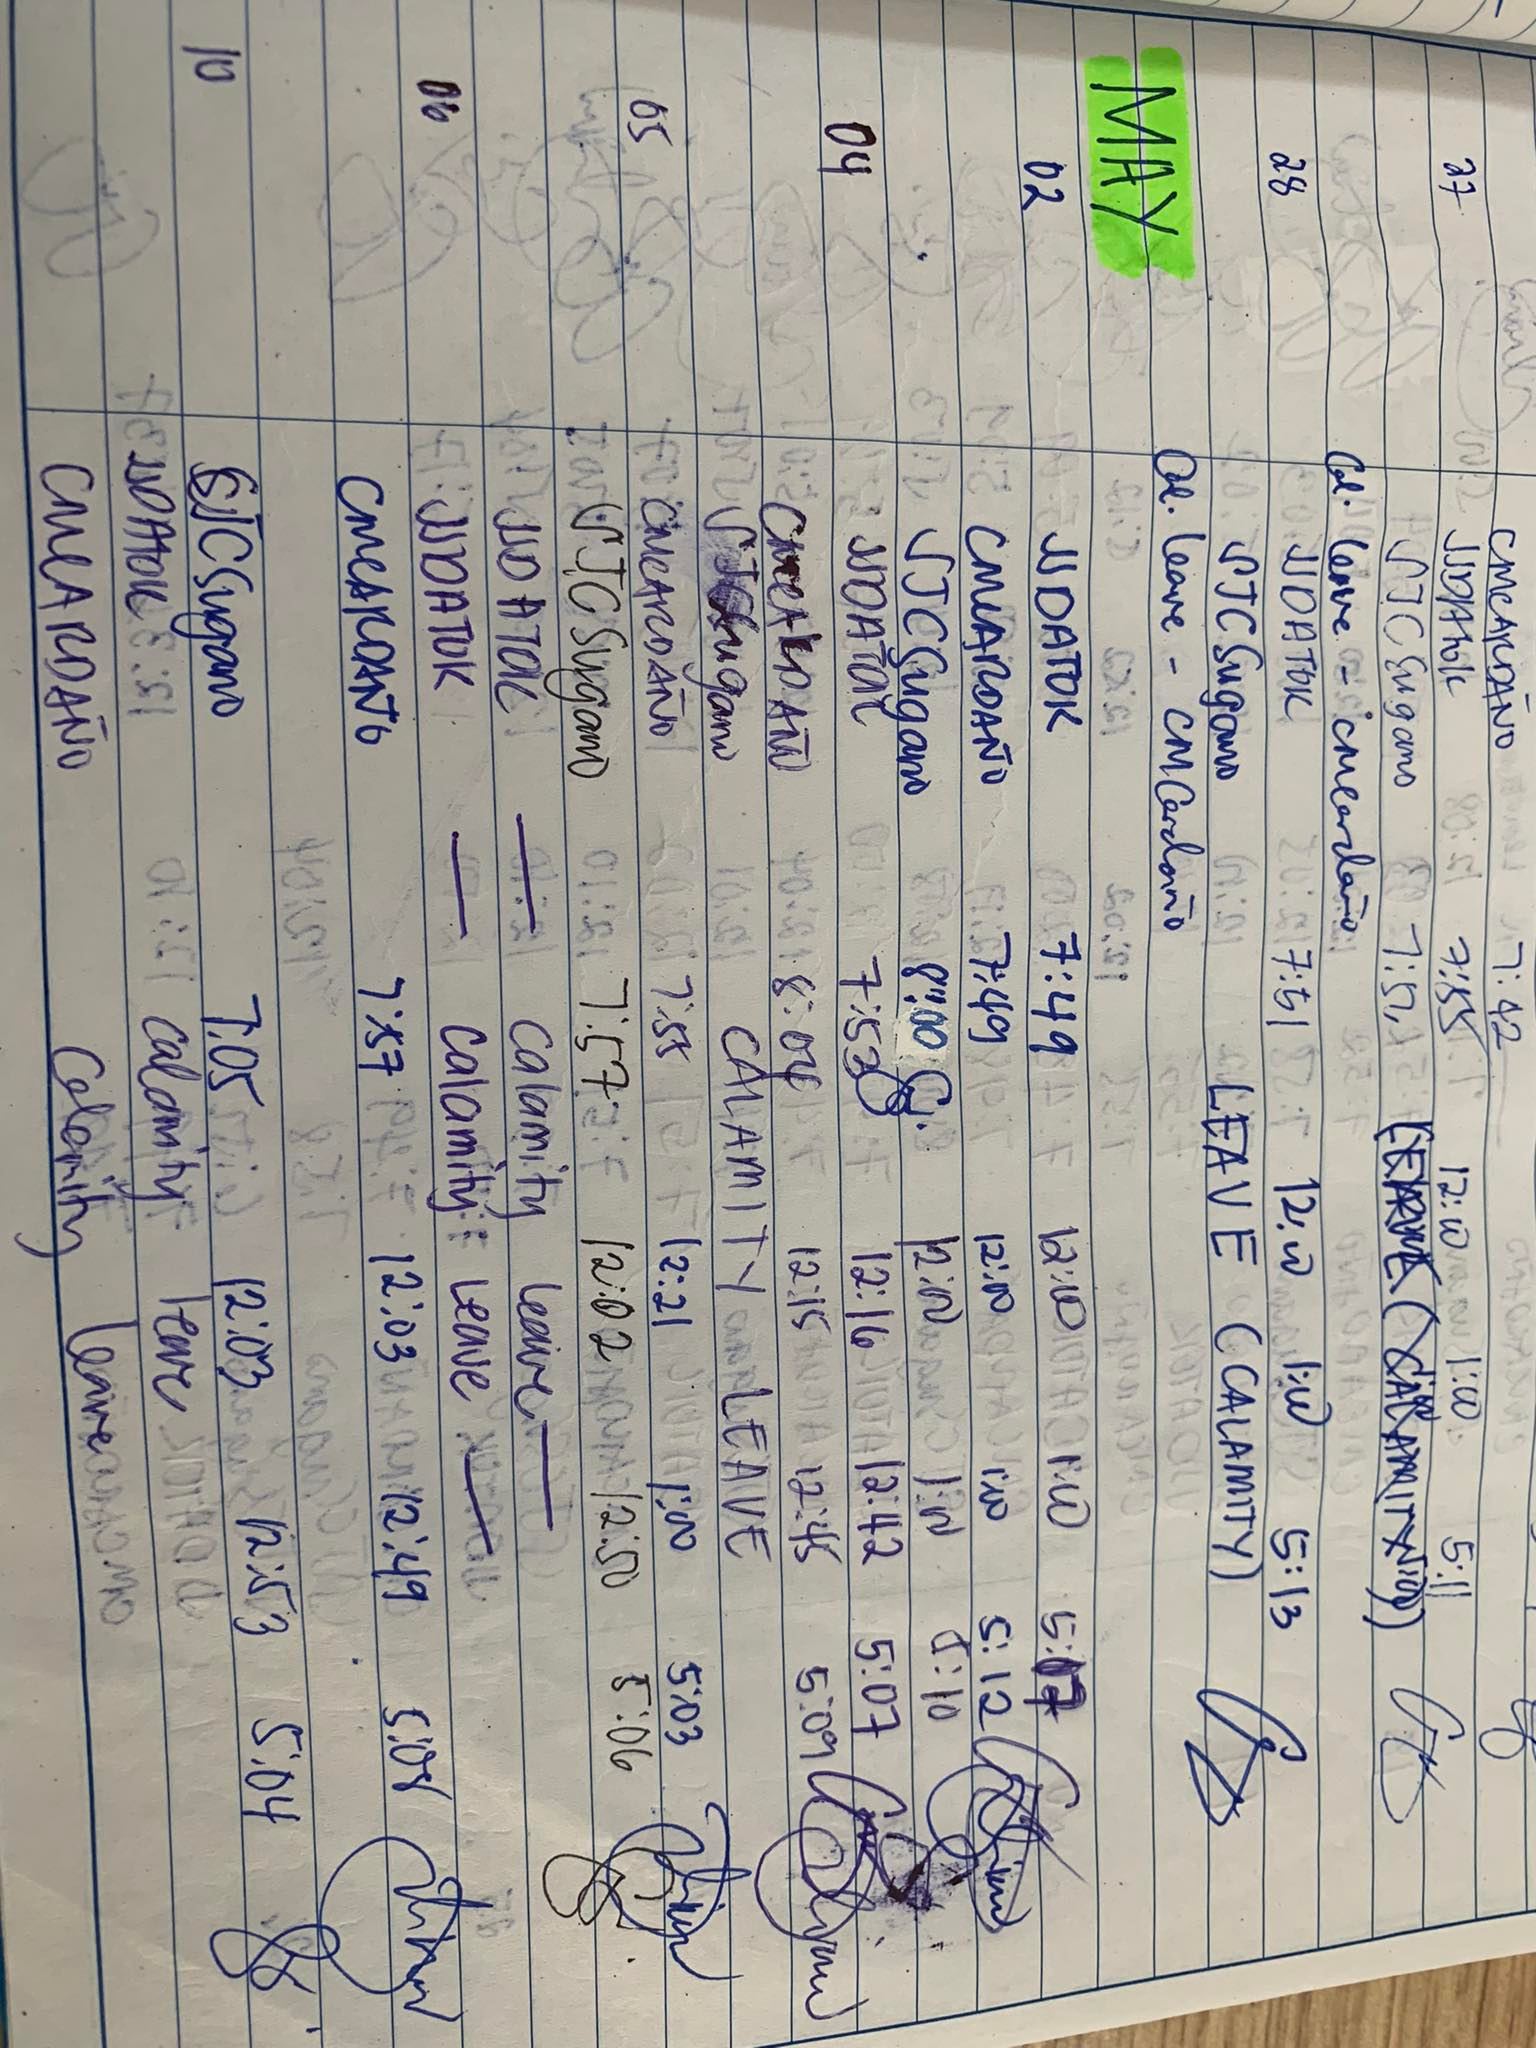 CMCARDAÑO 7:42
27 NDATOK 7:55 12:10 1:00 5:11
VJCSugano 7:51
Cal. leave - cmcardaño
28 NDATOK 7:51 12:10 1:00 5:13
VJCSugano LEAVE (CALAMITY)
Cal. leave - CMCardaño
MAY
02 NDATOK 7:49 12:10 1:00 5:07
CMCARDAÑO 7:49 12:10 1:00 5:12
VJCSugano 8:00 12:10 1:00 5:10
04 NDATOK 7:53 12:16 12:42 5:07
CMCARDAÑO 8:04 12:15 12:45 5:09
VJCSugano CALAMITY LEAVE
05 CMCARDAÑO 7:55 12:21 1:00 5:03
VJCSugano 7:57 12:02 12:50 5:06
NDATOK — Calamity leave —
06 NDATOK — Calamity Leave —
CMCARDAÑO 7:57 12:03 12:49 5:08
10 VJCSugano 7:05 12:03 12:53 5:04
NDATOK Calamity leave
CMCARDAÑO Calamity leave